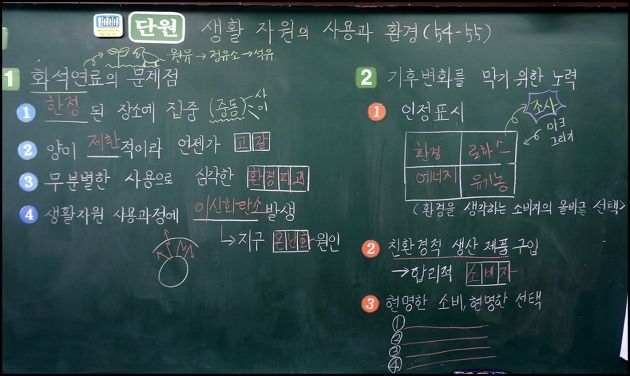 단원 생활 자원의 사용과 환경(54-55)
원유→정유소→석유
1 화석연료의 문제점
1 한정 된 장소에 집중 (중동) 사이
2 양이 제한적이라 언젠가 고갈
3 무분별한 사용으로 심각한 환경파괴
4 생활자원 사용과정에 이산화탄소 발생
↳지구 온난화 원인
2 기후변화를 막기 위한 노력
1 인정표시
조사
마크 그리기
환경
에너지 유기농
(환경을 생각하는 소비자의 올바른 선택)
2 친환경적 생산 제품 구입
→합리적 소비자
3 현명한 소비, 현명한 선택
①
②
③
④